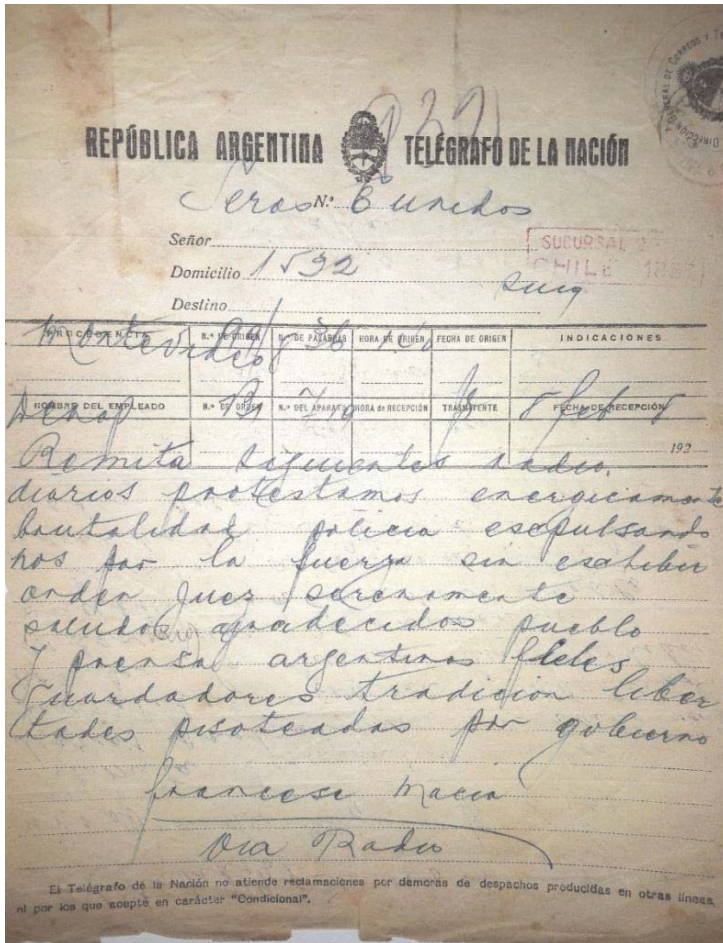 REPÚBLICA ARGENTINA TELÉGRAFO DE LA NACIÓN
Nº E unidos
Señor
SUCURSAL
CHILE
Domicilio 1592
Destino
PROCEDENCIA Nº DE ORIGEN Nº DE PALABRAS HORA DE ORIGEN FECHA DE ORIGEN INDICACIONES
Montevideo 36
NOMBRE DEL EMPLEADO Nº DE ORDEN Nº DEL APARATO HORA de RECEPCIÓN TRASMITENTE FECHA DE RECEPCIÓN
8 feb 8
192
Remita siguientes radio.
diarios protestamos energicamente
brutalidad policia esepulsando
nos por la fuerza sin exhibir
orden juez serenamente
saludos agradecidos pueblo
y prensa argentinos fieles
guardadores tradicion liber
tades pisoteadas por gobierno
Francesc Macia
Via Radio
El Telégrafo de la Nación no atiende reclamaciones por demoras de despachos producidas en otras líneas,
ni por los que acepte en carácter "Condicional".